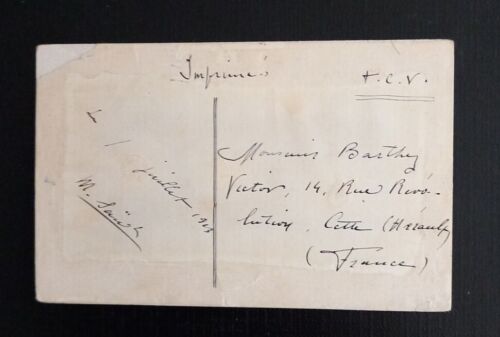 Imprimés
T.C.V.
Le 1 juillet 1903
Monsieur Barthez
Victor, 14, Rue Révo-
lution, Cette (Hérault)
(France)